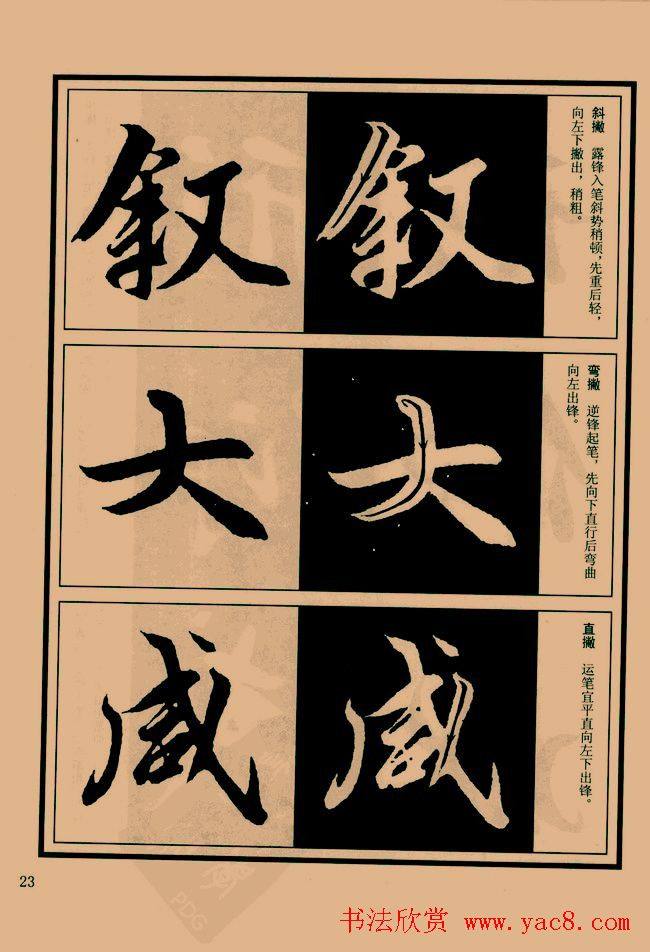 斜撇　露锋入笔斜势稍顿，先重后轻，
向左下撇出，稍粗。
叙 叙
弯撇　逆锋起笔，先向下直行后弯曲
向左出锋。
大 大
直撇　运笔宜平直向左下出锋。
咸 咸
23
PDG
书法欣赏 www.yac8.com